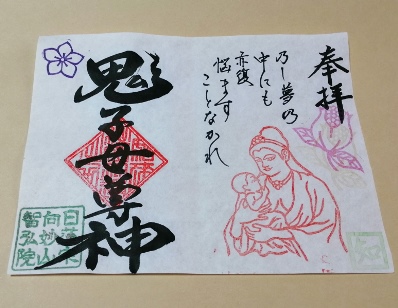 奉拝
乃至夢の
中にも
亦復
悩ます
ことなかれ
鬼子母尊神
日蓮宗
向妙山
智弘院